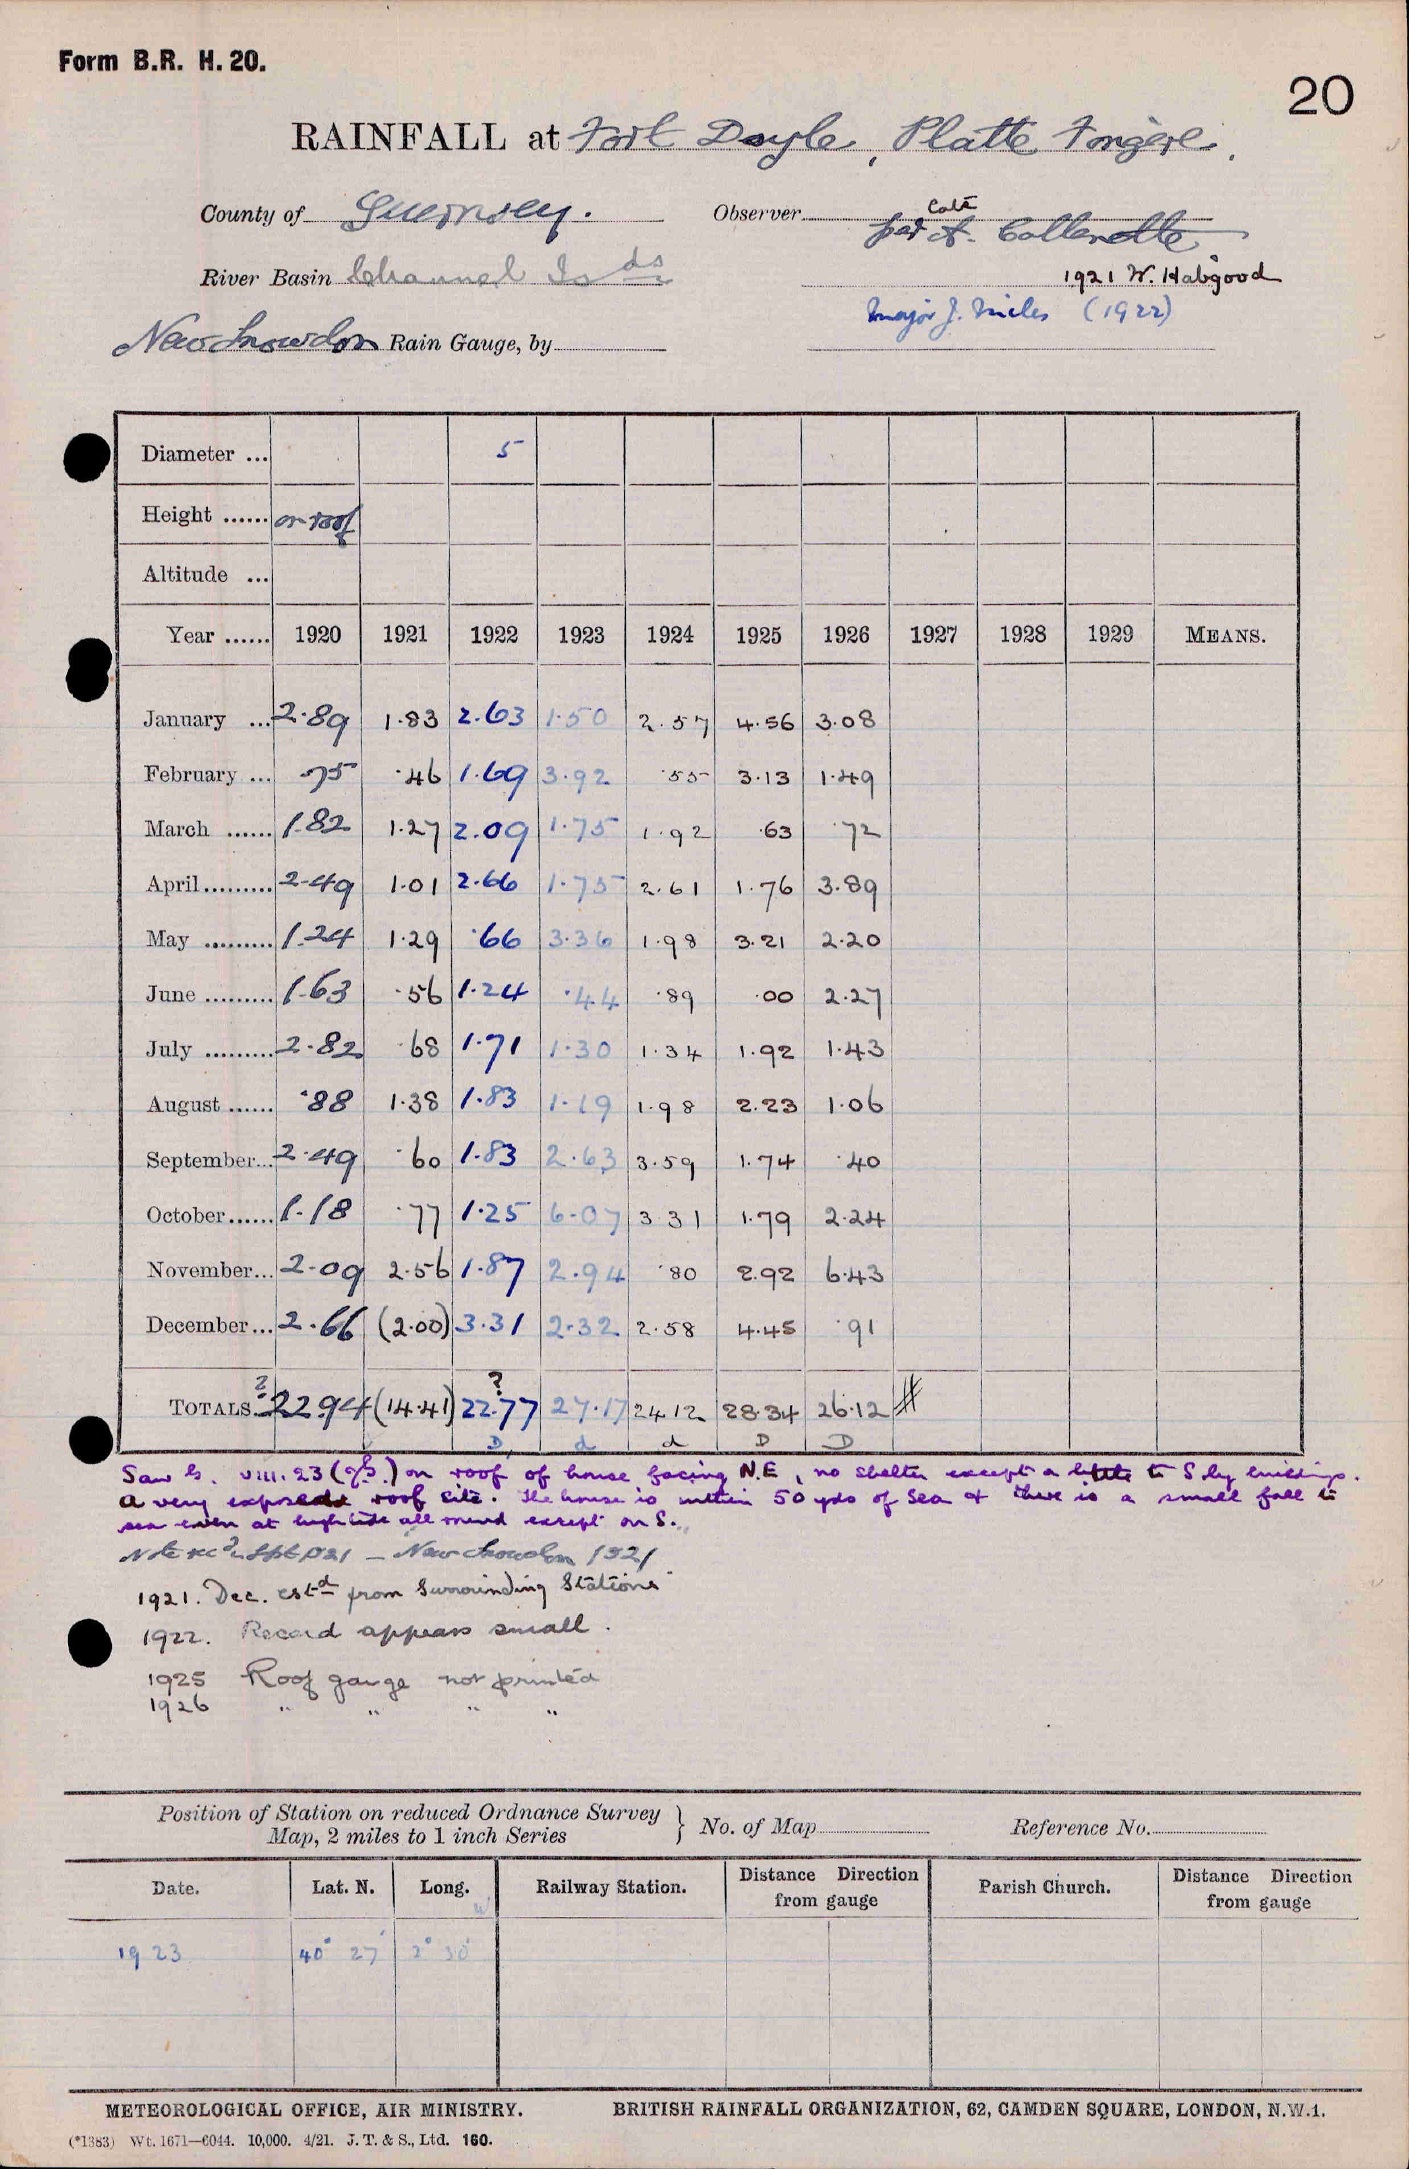 Form B.R. H. 20.
20
RAINFALL at Fort Doyle, Platte Fougère.
County of Guernsey. Observer Cole
per A. Collenette
River Basin Channel Isds 1921 W. Habgood
Major J. Miles (1922)
New Snowdon Rain Gauge, by
Diameter ... 5
Height ...... on roof
Altitude ...
Year ...... 1920 1921 1922 1923 1924 1925 1926 1927 1928 1929 MEANS.
January ... 2.89 1.83 2.63 1.50 2.57 4.56 3.08
February ... .75 .46 1.69 3.92 .55 3.13 1.49
March ...... 1.82 1.27 2.09 1.75 1.92 .63 .72
April......... 2.49 1.01 2.66 1.75 2.61 1.76 3.89
May ......... 1.24 1.29 .66 3.36 1.98 3.21 2.20
June ......... 1.63 .56 1.24 .44 .89 .00 2.27
July ......... 2.82 .68 1.71 1.30 1.34 1.92 1.43
August ...... .88 1.38 1.83 1.19 1.98 2.23 1.06
September... 2.49 .60 1.83 2.63 3.59 1.74 .40
October...... 1.18 .77 1.25 6.07 3.31 1.79 2.24
November... 2.09 2.56 1.87 2.94 .80 2.92 6.43
December... 2.66 (2.00) 3.31 2.32 2.58 4.45 .91
? ?
TOTALS. 22.94 (14.41) 22.77 27.17 24.12 28.34 26.12 #
D d d D D
Saw G. VIII.23 on roof of house facing N.E, no shelter except a little to S by buildings.
A very exposed roof site. The house is within 50 yds of Sea & there is a small fall to
sea even at high tide all round except on S.
Note recd Sept 1921 — New Snowdon 1921
1921. Dec. estd from Surrounding Stations
1922. Record appears small.
1925 Roof gauge not printed
1926 " " " "
Position of Station on reduced Ordnance Survey
Map, 2 miles to 1 inch Series } No. of Map Reference No.
Date. Lat. N. Long. W Railway Station. Distance Direction from gauge Parish Church. Distance Direction from gauge
1923 40° 27' 2° 30'
METEOROLOGICAL OFFICE, AIR MINISTRY. BRITISH RAINFALL ORGANIZATION, 62, CAMDEN SQUARE, LONDON, N.W.1.
(*1383) Wt. 1671—6044. 10,000. 4/21. J. T. & S., Ltd. 160.